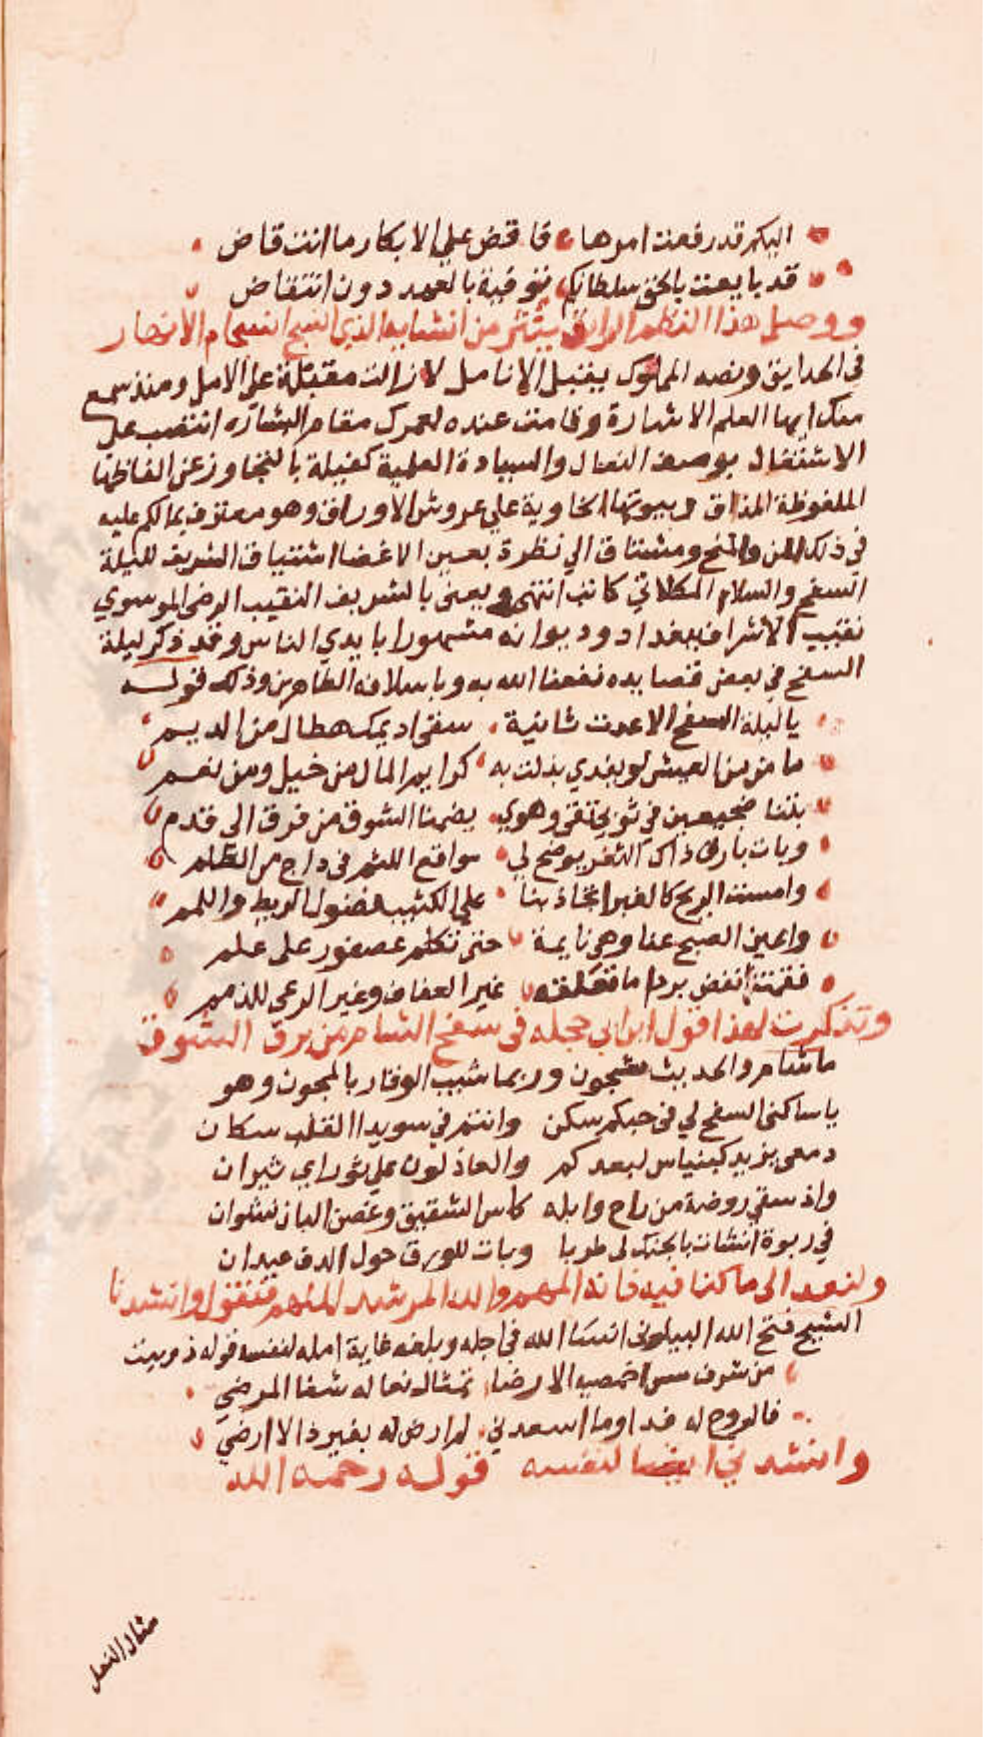 اليكم قد رفعت امرها فاقض علي الابكار ما انت قاض
قد بايعت بالحق سلطانكم توفية بالعهد دون انتقاض
ووصل هذا النظم الرائق بنثر من انشايه الذي انسجم انسجام الانهار
في الحدايق ونصه المملوك يقبل الانامل لازالت مقبلة على الامل ومنذ سمع
منك ايها العلم الاشارة وقامت عنده لعمرك مقام البشاره انتصب على
الاشتغال بوصف النعال والسيادة العلمية كفيلة بالتجاوز عن الفاظها
الملفوظة المذاق وبيوتها الخاوية علي عروش الاوراق وهو معترف بما لكم عليه
في ذلك المن والمنح ومشتاق الي نظرة بعين الاغضا اشتياق الشريف لليلة
السفح والسلام المكلاتي كاتب انتهى ويعنى بالشريف النقيب الرضى الموسوي
نقيب الاشراف ببغداد وديوانه مشهور بايدي الناس وقد ذكر ليلة
السفح في بعض قصايده نفعنا الله به وباسلافه الطاهرين وذلك قوله
يا ليلة السفح الا عدت ثانية سقى اديمك هطال من الديم
ماض من العيش لو يفدي بذلت به كرايم المال من خيل ومن نعم
بتنا ضجيعين في ثوبي تقى وهوي يضمنا الشوق من فرق الى قدم
وبات بارق ذاك الثغر يوضح لي مواقع اللثم في داج من الظلم
وامست الريح كالغيرا تجاذبنا علي الكثيب فضول الريط واللمم
واعين الصبح عنا وهي نايمة حتى تكلم عصفور على علم
فقمت انفض بردا ما تعلقه غير العفاف وغير الرعي للذمم
وتذكرت لهذا قول ابن ابي حجله في سفح الشام من برق الشوق
ما شام والحديث شجون وربما شيب الوقار بالمجون وهو
يا ساكني السفح لي في حبكم سكن وانتم في سويدا القلب سكان
دمعى يزيد لبعدكم والعاذلون علي ثوراي ثيران
واذ سقي روضة من راح وابله كاس الشقيق وغصن البان نشوان
في ربوة انشات بالجنك لى طربا وبات للورق حول الدف عيدان
ولنعد الى ما كنا فيه فانه المهم والله المرشد الملهم فنقول وانشدنا
الشيخ فتح الله البيلوني انسا الله في اجله وبلغه غاية امله لنفسه قوله دوبيت
من شرف مس اخمصيه الارضا تمثال نعاله شفا المرضي
فالروح له فدا وما اسعدني لم ارض له بغير ذا لا ارضي
وانشدني ايضا لنفسه قوله رحمه الله
مثال النعل